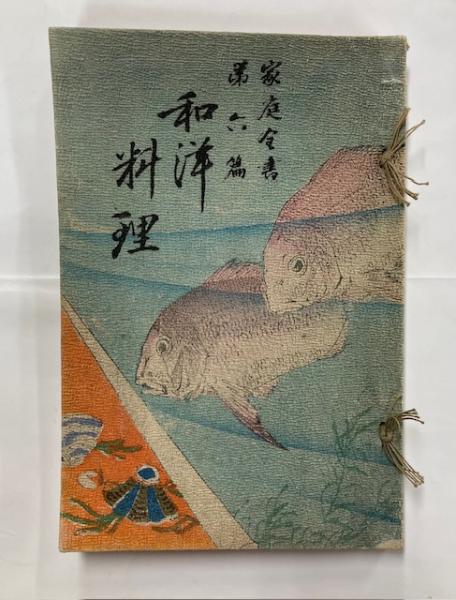 家庭全書
第六篇
和洋
料理